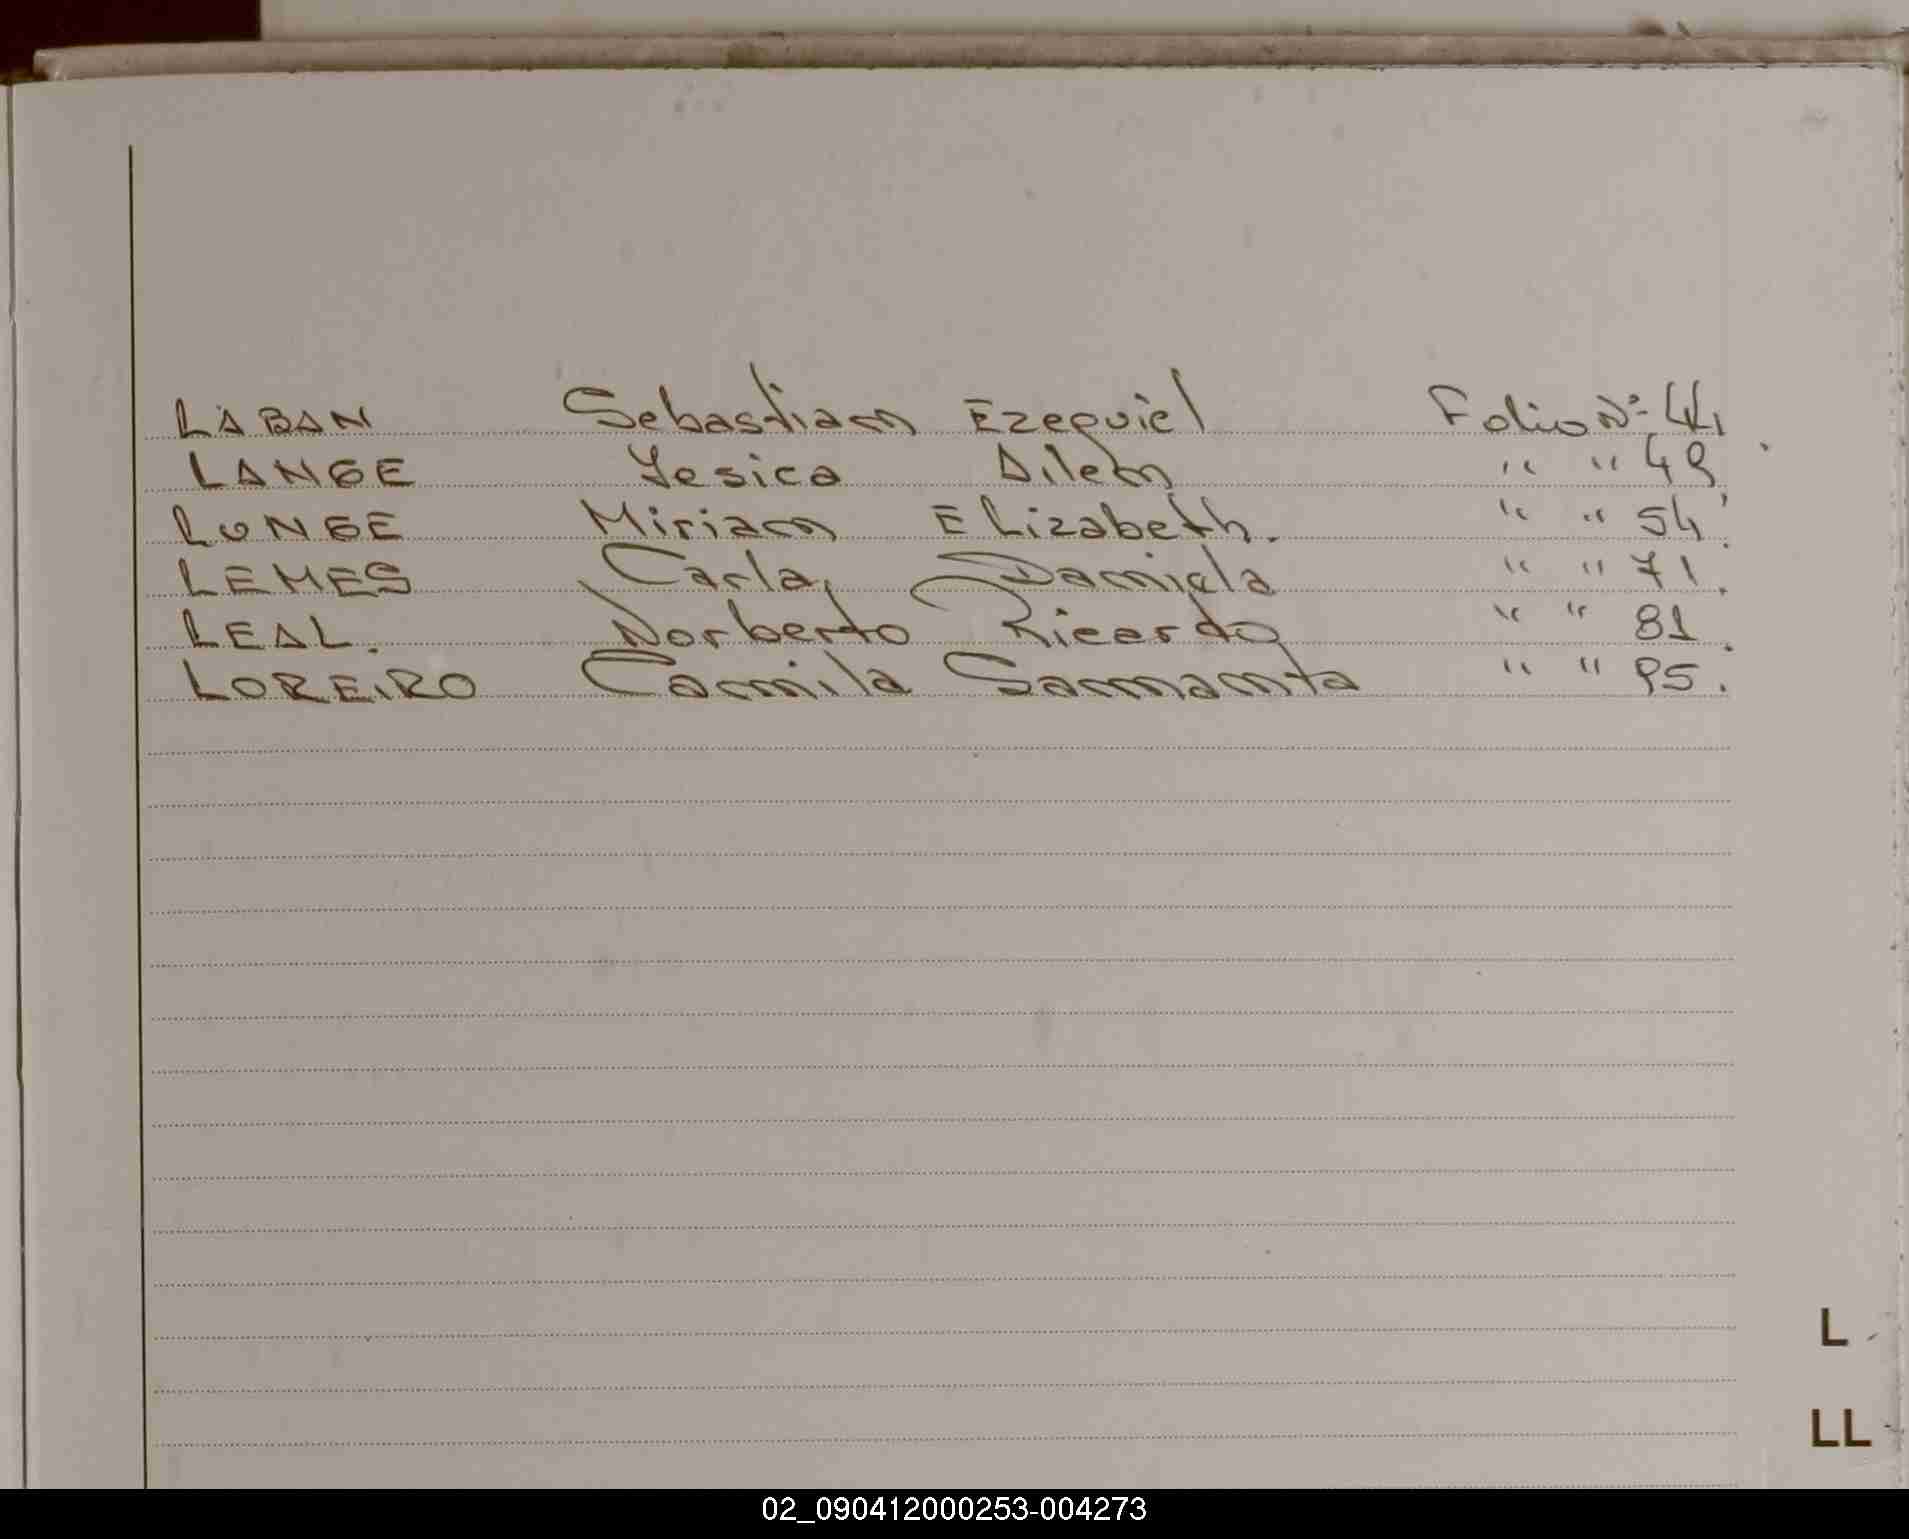 LABAN Sebastian Ezequiel Folio Nº 44
LANGE Yesica Ailen " " 49
LUNGE Miriam Elizabeth. " " 54
LEMES Carla Daniela " " 71.
LEAL. Norberto Ricardo " " 81.
LOREIRO Camila Samanta " " 95.
L
LL
02_090412000253-004273